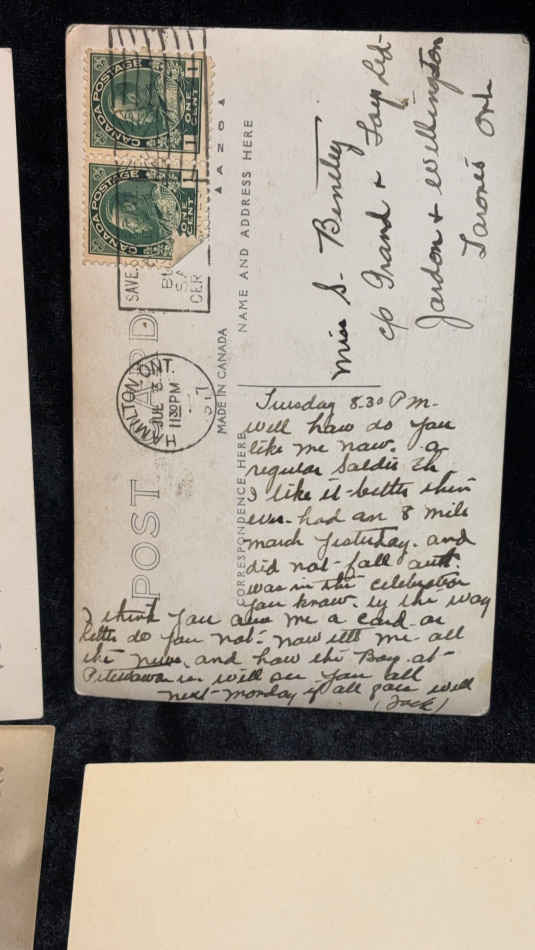 CANADA POSTAGE
ONE CENT
CANADA POSTAGE
ONE CENT
SAVE
BU
S
CER
HAMILTON ONT.
11 30 PM
POST CARD
MADE IN CANADA
CORRESPONDENCE HERE
NAME AND ADDRESS HERE
Miss S. Bentley
c/o Grand & Toy Ltd
Jardon & Wellington
Toronto Ont
Tuesday 8.30 P.M.
Well how do you
like me now. a
regular Soldier Eh
I like it better then
ever had an 8 mile
march yesterday. and
did not fall out.
was in the celebration
you know. by the way
I think you owe me a card or
letter do you not. now tell me all
the news. and how the Boy at
Petewawa is will see you all
next monday if all goes well
(Jack)